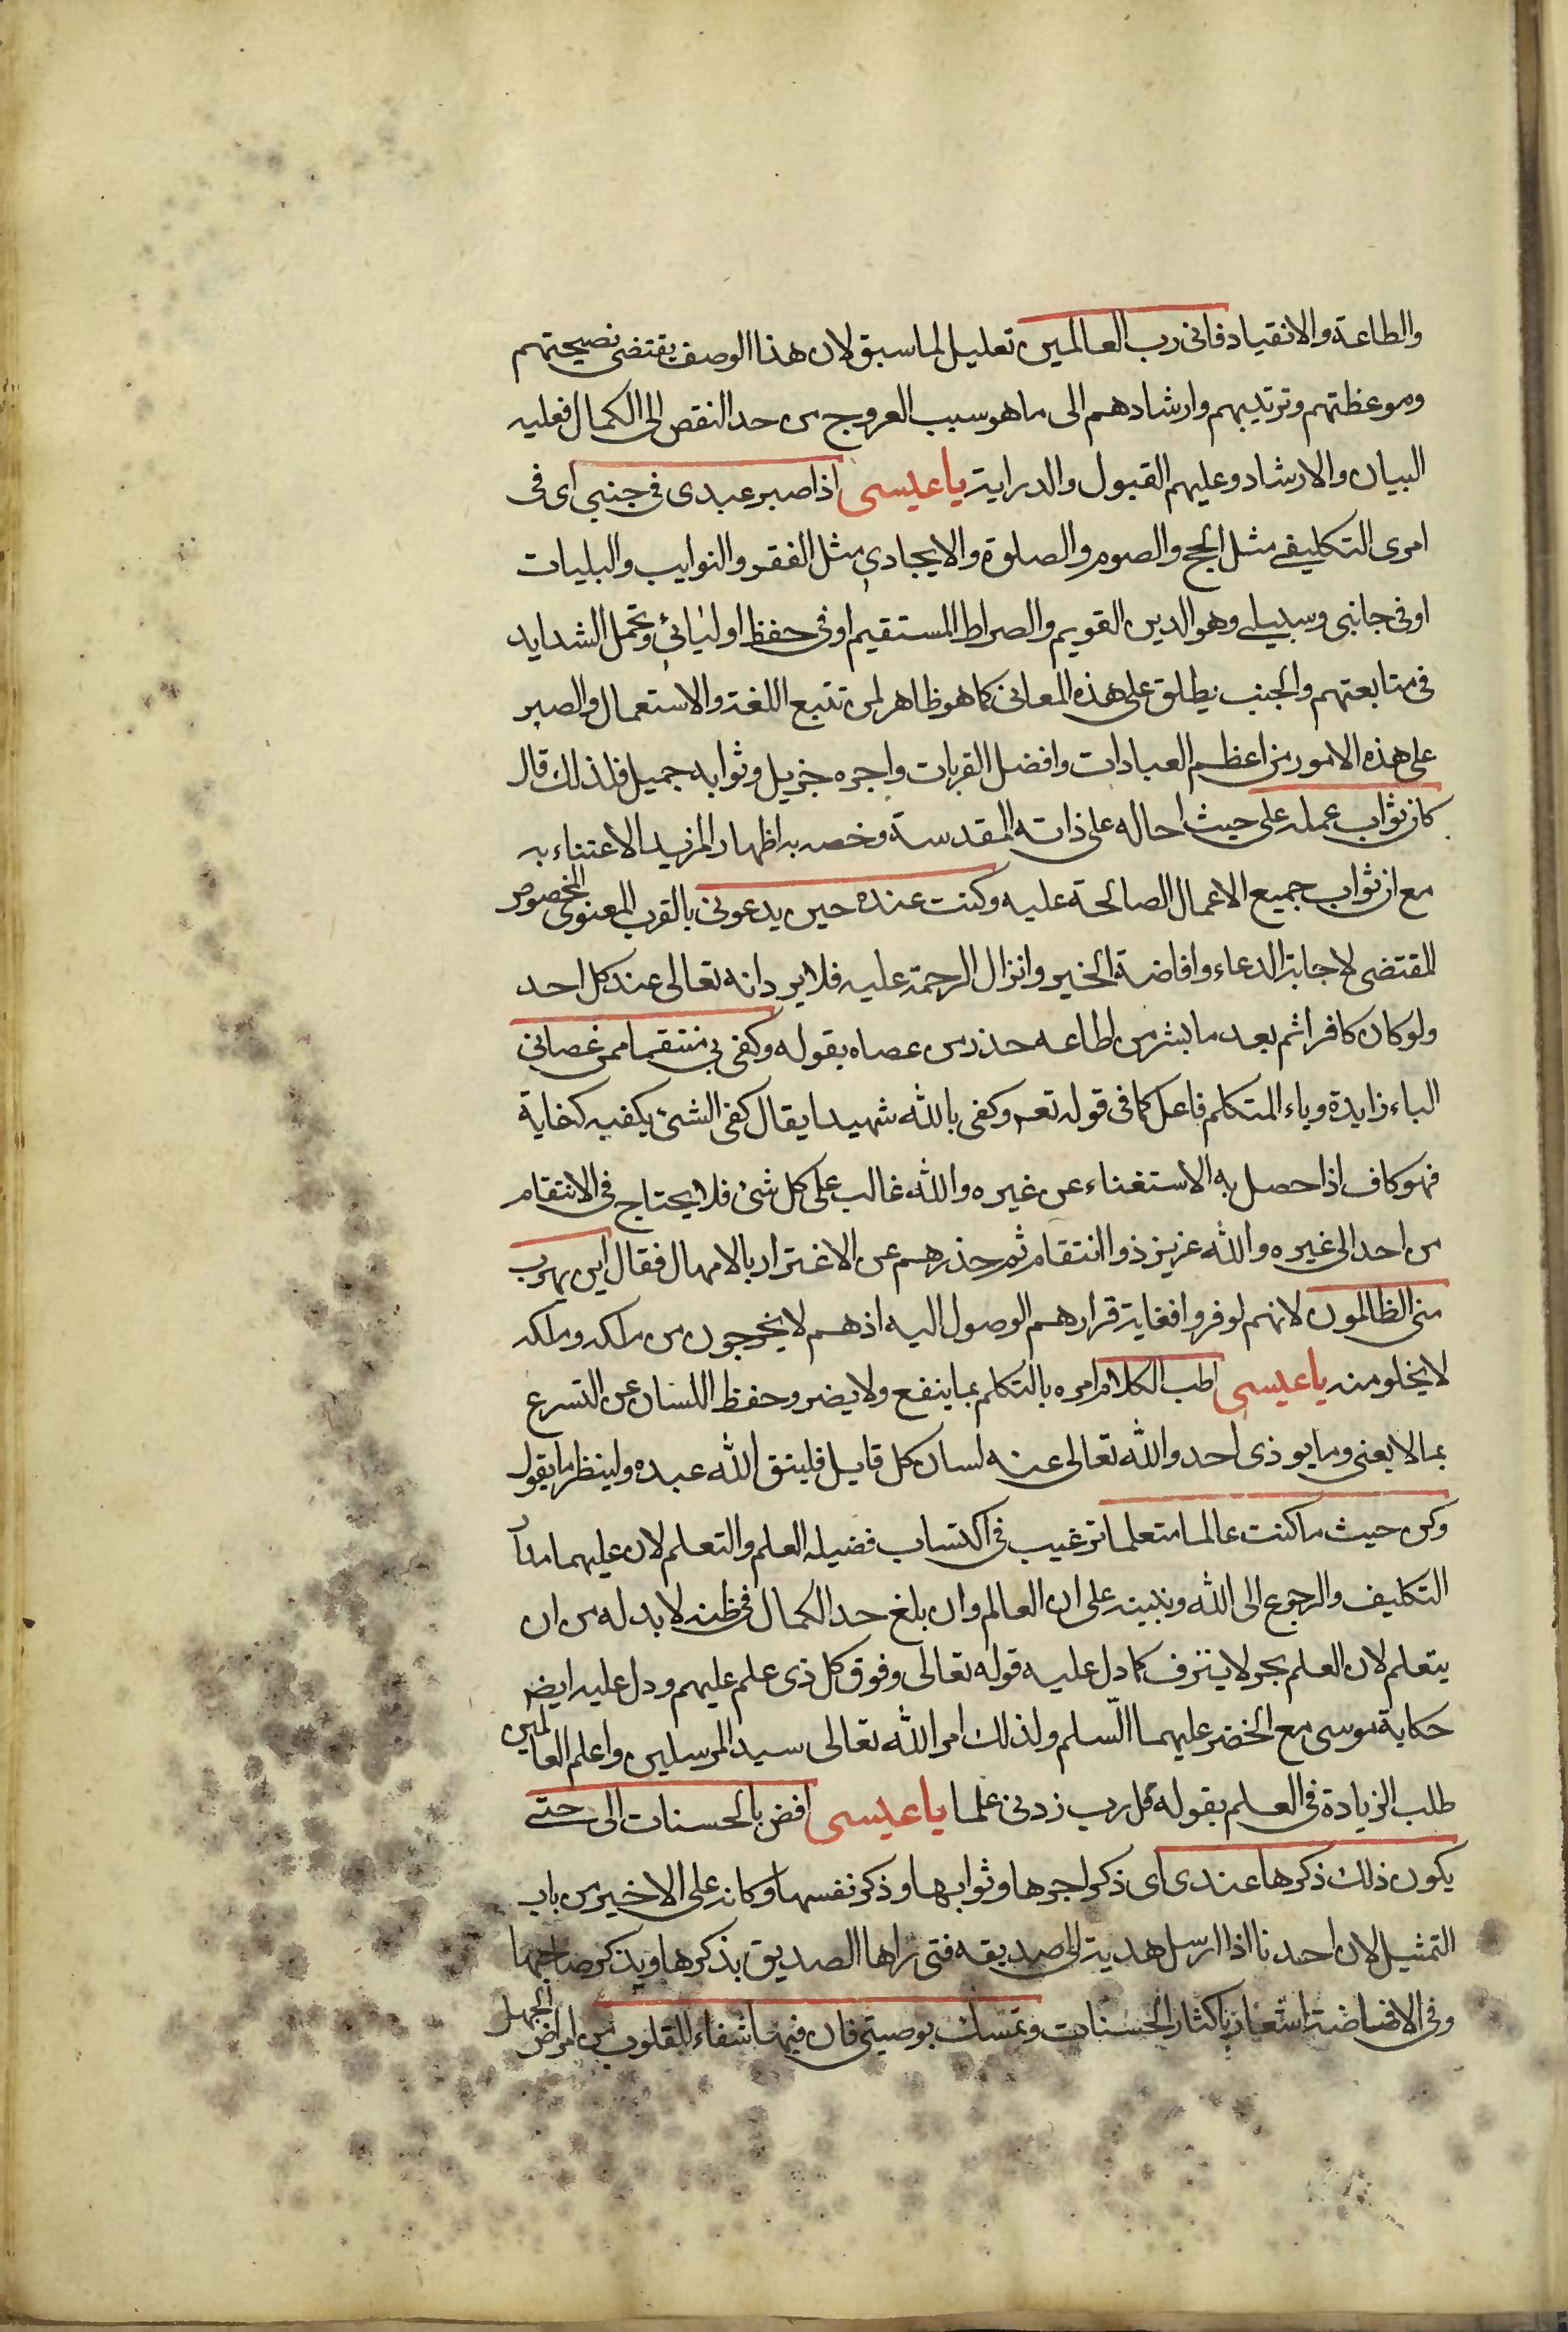 والطاعة والانقياد فانى رب العالمين تعليل لما سبق لان هذا الوصف يقتضى نصيحتهم
وموعظتهم وترتيبهم وارشادهم الى ما هو سبب العروج من حد النقص الى الكمال فعليه
البيان والارشاد وعليهم القبول والدراية يا عيسى اذا صبر عبدى فى جنبى اى فى
امرى التكليفى مثل الحج والصوم والصلوة والايجادى مثل الفقر والنوايب والبليات
او فى جانبى وسبيلى وهو الدين القويم والصراط المستقيم او فى حفظ اوليائى وتحمل الشدايد
فى متابعتهم والجنب يطلق على هذه المعانى كما هو ظاهر لمن تتبع اللغة والاستعمال والصبر
على هذه الامور من اعظم العبادات وافضل القربات واجره جزيل وثوابه جميل فلذلك قال
كان ثواب عمله على حيث احاله على ذاته المقدسة وخصه به اظهار المزيد الاعتناء به
مع ان ثواب جميع الاعمال الصالحة عليه وكنت عنده حين يدعونى بالقرب المعنوى المخصوص
المقتضى لاجابة الدعاء وافاضة الخير وانزال الرحمة عليه فلا يرد انه تعالى عند كل احد
ولو كان كافرا ثم بعد ما بشر من اطاعه حذر من عصاه بقوله وكفى بى منتقما ممن عصانى
الباء زايدة وياء المتكلم فاعل كما فى قوله تعـ وكفى بالله شهيدا يقال كفى الشئ يكفيه كفاية
فهو كاف اذا حصل به الاستغناء عن غيره والله غالب على كل شئ فلا يحتاج فى الانتقام
من احد الى غيره والله عزيز ذو انتقام ثم حذرهم عن الاغترار بالامهال فقال اين يهرب
منى الظالمون لانهم لو فروا فغاية قرارهم الوصول اليه اذ هم لا يخرجون من ملكه وملكه
لا يخلو منه يا عيسى اطب الكلام امره بالتكلم بما ينفع ولا يضر وحفظ اللسان عن التسرع
بما لا يعنى وما يوذى احد والله تعالى عنه لسان كل قايل فليتق الله عبده ولينظر ما يقول
وكن حيث ما كنت عالما متعلما ترغيب فى اكتساب فضيله العلم والتعلم لان عليهما مدار
التكليف والرجوع الى الله وتنبيه على ان العالم وان بلغ حد الكمال فى ظنه لا بد له من ان
يتعلم لان العلم بحر لا ينزف كما دل عليه قوله تعالى وفوق كل ذى علم عليهم ودل عليه ايضـ
حكاية موسى مع الخضر عليهما السلم ولذلك امر الله تعالى سيد المرسلين واعلم العالمين
طلب الزيادة فى العلم بقوله قل رب زدنى علما يا عيسى افض بالحسنات الى حتى
يكون ذلك ذكرها عندى اى ذكر اجرها وثوابها وذكر نفسها وكانه على الاخير من باب
التمثيل لان احدنا اذا ارسل هدية الى صديقه فتى راها الصديق يذكرها ويذكر صاحبها
وفى الافاضة اشعار باكثار الحسنات وتمسك بوصيتى فان فيها شفاء للقلوب من امراض الجهل